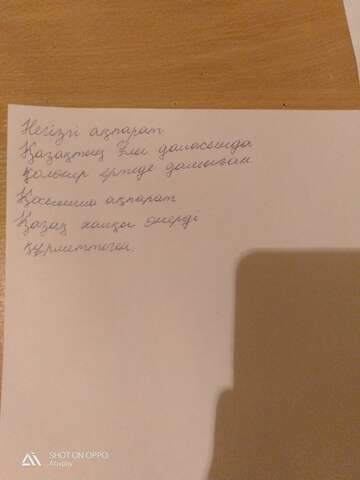 Негізгі ақпарат
Қазақтың Ұлы даласында
қолөнер ертеде дамыған
Қосымша ақпарат
Қазақ халқы өнерді
құрметтеген.
SHOT ON OPPO